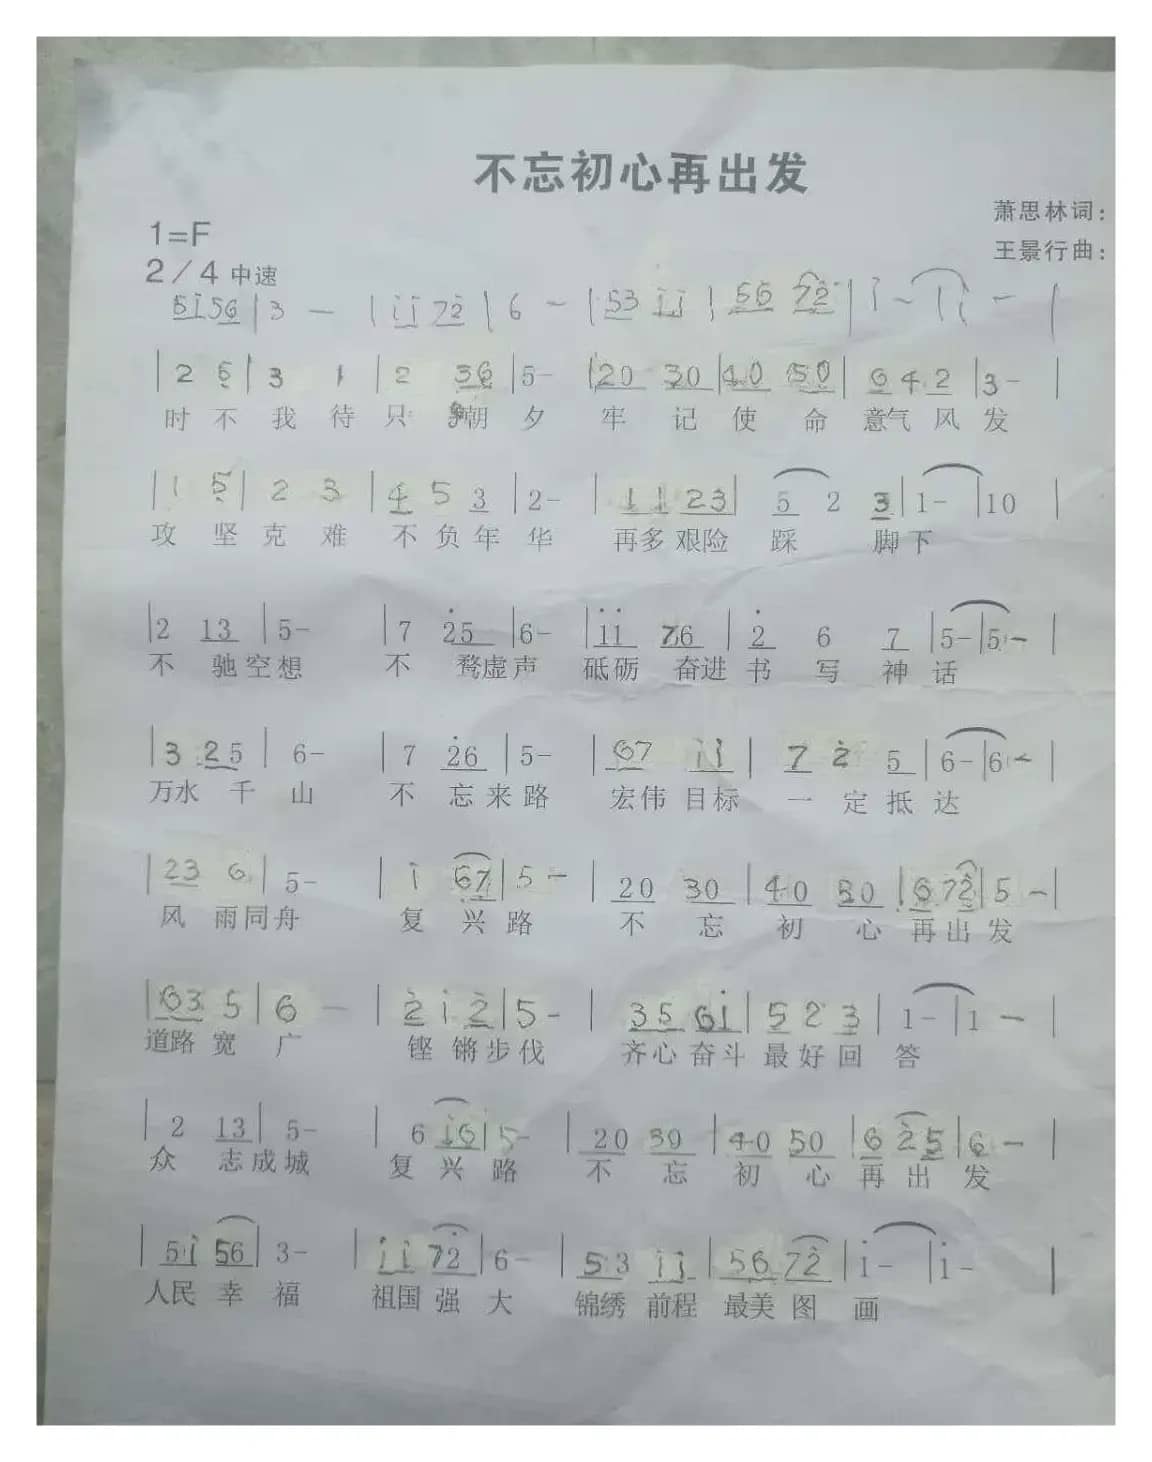 不忘初心再出发
萧思林词：
1=F
王景行曲：
2／4 中速
5i56 | 3 — | i i 7 2̇ | 6 — | 53 i i | 56 7 2̇ | i — | i —  |
| 2 5 | 3 1 | 2 36 | 5- | 20 30 | 40 50 | 6 4 2 | 3- |
时 不 我 待 只 朝 夕 牢 记 使 命 意气 风 发
| 1 5 | 2 3 | 4 5 3 | 2- | 1 1 23 | 5 2 3 | 1- | 10 |
攻 坚 克 难 不 负 年 华 再多 艰险 踩 脚 下
| 2 13 | 5- | 7 2̇5 | 6- | i i 76 | 2̇ 6 7 | 5- | 5- |
不 驰 空 想 不 骛虚 声 砥砺 奋进 书 写 神 话
| 3 25 | 6- | 7 2̇6 | 5- | 67 i i | 7 2̇ 5 | 6- | 6- |
万水 千 山 不 忘 来 路 宏伟 目标 一 定 抵 达
| 23 6 | 5- | i 67 | 5- | 20 30 | 40 50 | 6 7 2̇ | 5- |
风 雨同 舟 复 兴 路 不 忘 初 心 再 出 发
| 63 5 | 6 — | 2̇ i 2̇ | 5- | 35 6i | 5 2 3 | 1- | 1- |
道路 宽 广 铿 锵 步 伐 齐心 奋斗 最 好 回 答
| 2 13 | 5- | 6 i6 | 5- | 20 30 | 40 50 | 6 2̇5 | 6- |
众 志 成 城 复 兴 路 不 忘 初 心 再 出 发
| 5i 56 | 3- | i i 7 2̇ | 6- | 53 i i | 56 7 2̇ | i- | i- |
人民 幸 福 祖国 强 大 锦绣 前程 最美 图 画